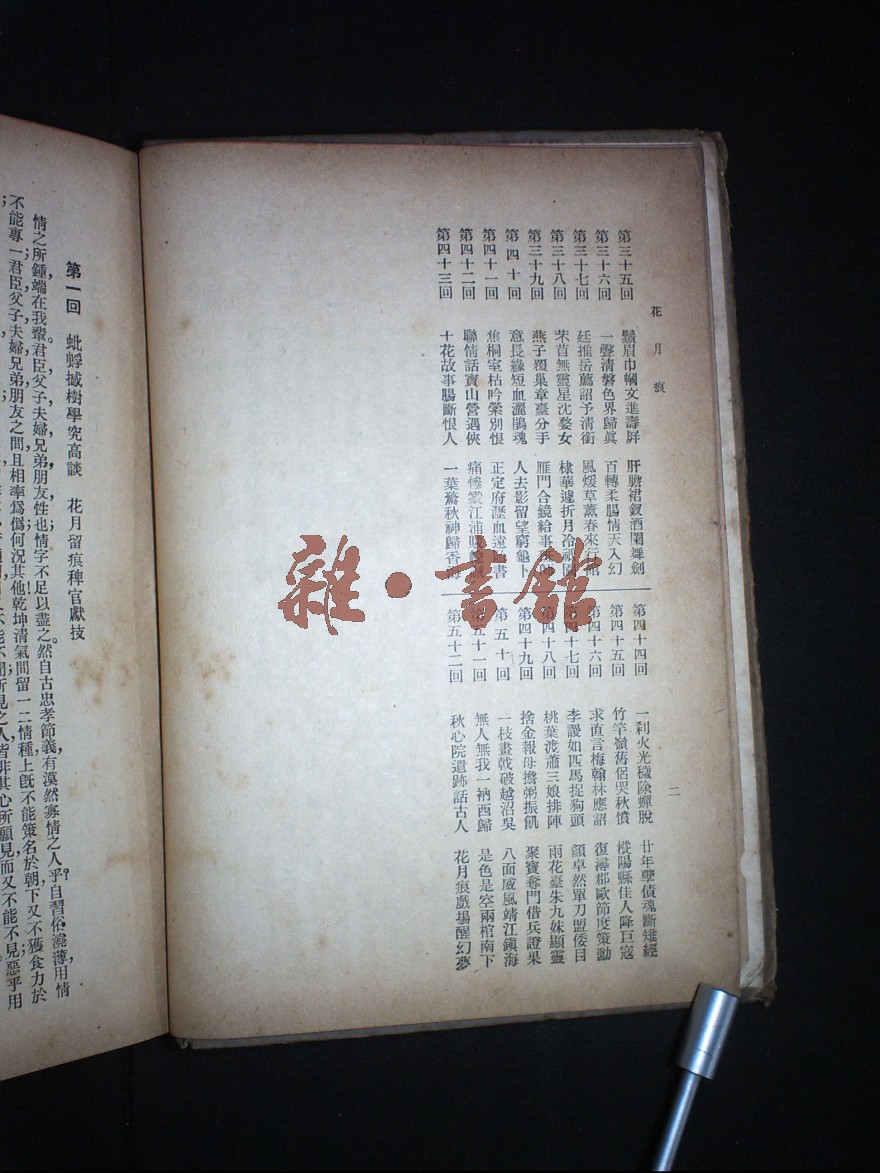 花月痕
二
第三十五回 鬚眉巾幗文進壽屏 肝膽裙釵酒闌舞劍
第三十六回 一聲清磬色界歸眞 百轉柔腸情天入幻
第三十七回 廷推岳薦詔予清銜 風煖草薰春來行館
第三十八回 芣苢無靈星沈婺女 棣華遽折月冷祇園
第三十九回 燕子覆巢章臺分手 雁門合鏡給事
第四十回 意長緣短血灑鵑魂 人去影留望窮龜卜
第四十一回 焦桐室枯吟縈別恨 正定府瀝血遠貽書
第四十二回 聯情話寶山營遇俠 痛慘變江浦
第四十三回 十花故事腸斷恨人 一葉驚秋神歸香海
第四十四回 一刹火光穢除蟬脫 廿年孽債魂斷雉經
第四十五回 竹竿嶺舊侶哭秋墳 樅陽縣佳人降巨寇
第四十六回 求直言梅翰林應詔 復潯郡歐節度策勳
第四十七回 李謖如匹馬捉狗頭 顏卓然單刀盟倭目
第四十八回 桃葉渡蕭三娘排陣 雨花臺朱九妹顯靈
第四十九回 捨金報母擔粥振飢 聚寶奪門借兵證果
第五十回 一枝畫戟破越沼吳 八面威風靖江鎮海
第五十一回 無人無我一衲西歸 是色是空兩棺南下
第五十二回 秋心院遺跡話古人 花月痕戲場醒幻夢
雜·書館
第一回 蚍蜉撼樹學究高談 花月留痕稗官獻技
情之所鍾端在我輩。君臣父子夫婦兄弟朋友性也情字不足以盡之然自古忠孝節義有漠然寡情之人乎?自習俗澆薄用情
不能專一君臣父子夫婦兄弟朋友之間且相率爲僞何況其他乾坤清氣間留一二情種上旣不能策名於朝下又不獲食力於
不能不聞所見之人皆非其心所願見而又不能不見惡乎用